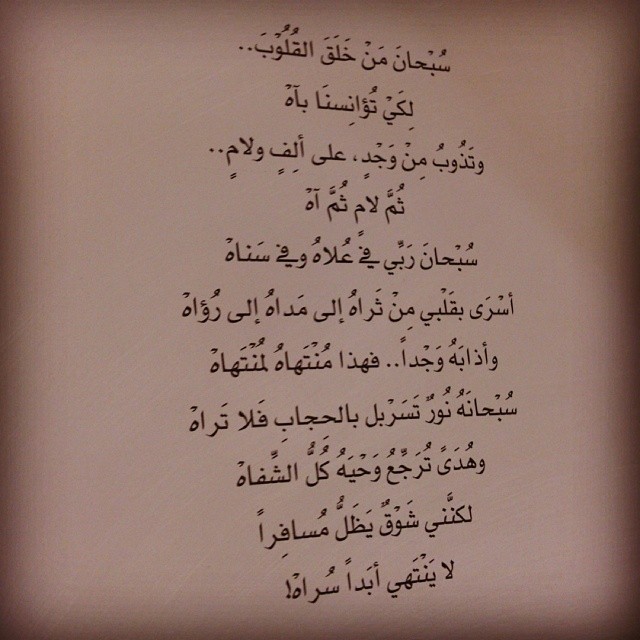 سُبْحانَ مَنْ خَلَقَ القُلُوْبَ..
لِكَيْ تُؤانِسنَا بآهْ
وتَذُوبُ مِنْ وَجْدٍ، على ألِفٍ ولامٍ..
ثُمَّ لامٍ ثُمَّ آهْ
سُبْحانَ رَبِّي فيْ عُلاهُ وفي سَناهْ
أسْرَى بقَلْبي مِنْ ثَراهُ إلى مَداهُ إلى رُؤاهْ
وأذابَهُ وَجْداً.. فهذا مُنْتَهاهُ لمُنْتَهاهْ
سُبْحانَهُ نُورٌ تَسَرْبل بالحِجابِ فَلا تَراهْ
وهُدَىً تُرَجِّعُ وَحْيَهُ كُلُّ الشِّفاهْ
لكنَّني شَوْقٌ يَظَلُّ مُسافِراً
لا يَنْتَهي أبَداً سُراهْ!